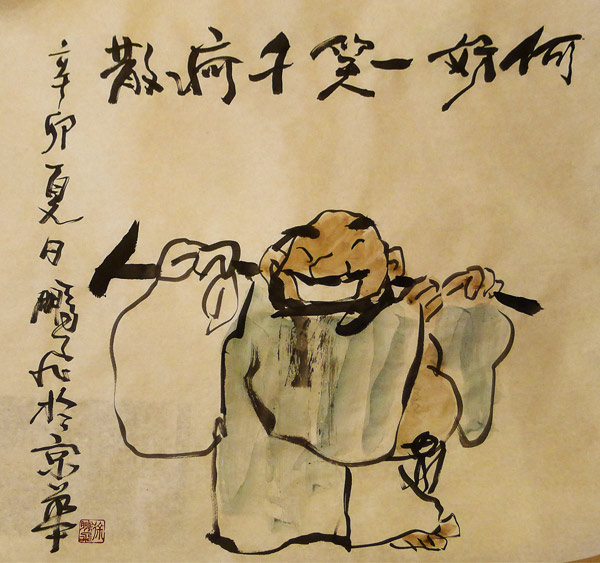 何妨一笑千疴散
辛卯夏日鹏飞作於京華